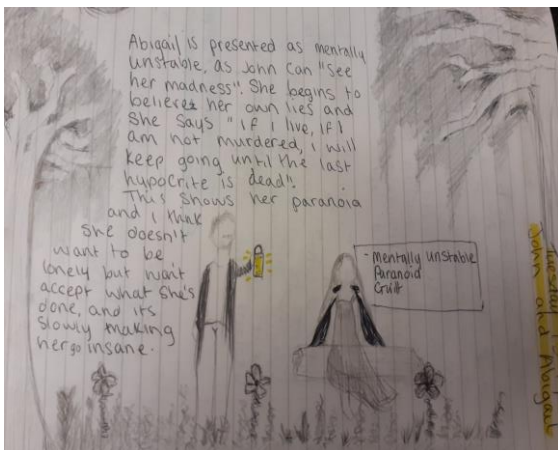 Abigail is presented as mentally
unstable, as John can "see
her madness". She begins to
believes her own lies and
she says "If I live, If I
am not murdered, I will
keep going until the last
hypocrite is dead".
This shows her paranoia
and I think
she doesn't
want to be
lonely but won't
accept what she's
done, and its
slowly making
her go insane.
- Mentally unstable
Paranoid
Guilt
Tuesday
John and Abigail